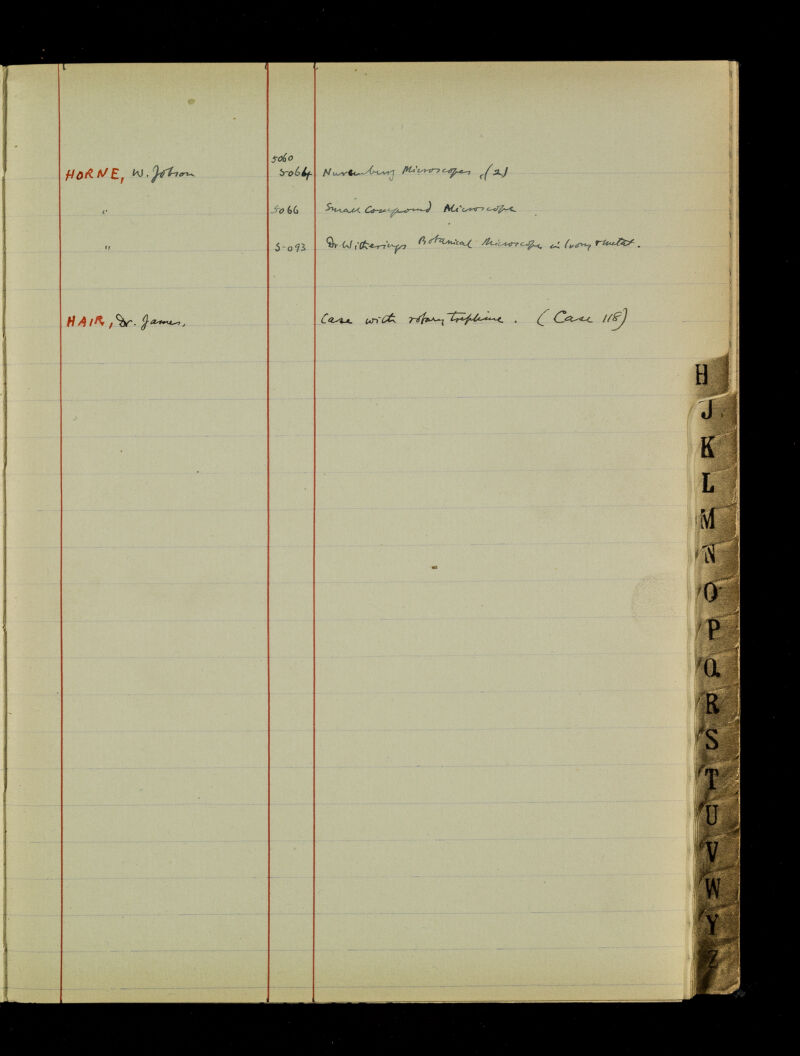 5060
HORNE, W. Jobson 5064 Nuremburg Microscopes (2)
" 5066 Small Compound Microscope
" 5093 Dr Witherings Botanical Microscopes in Ivory & metal.
HAIR, Dr. James, Case with rotary trephine. (Case 118)
H
J
K
L
M
N
O
P
Q
R
S
T
U
V
W
Y
Z